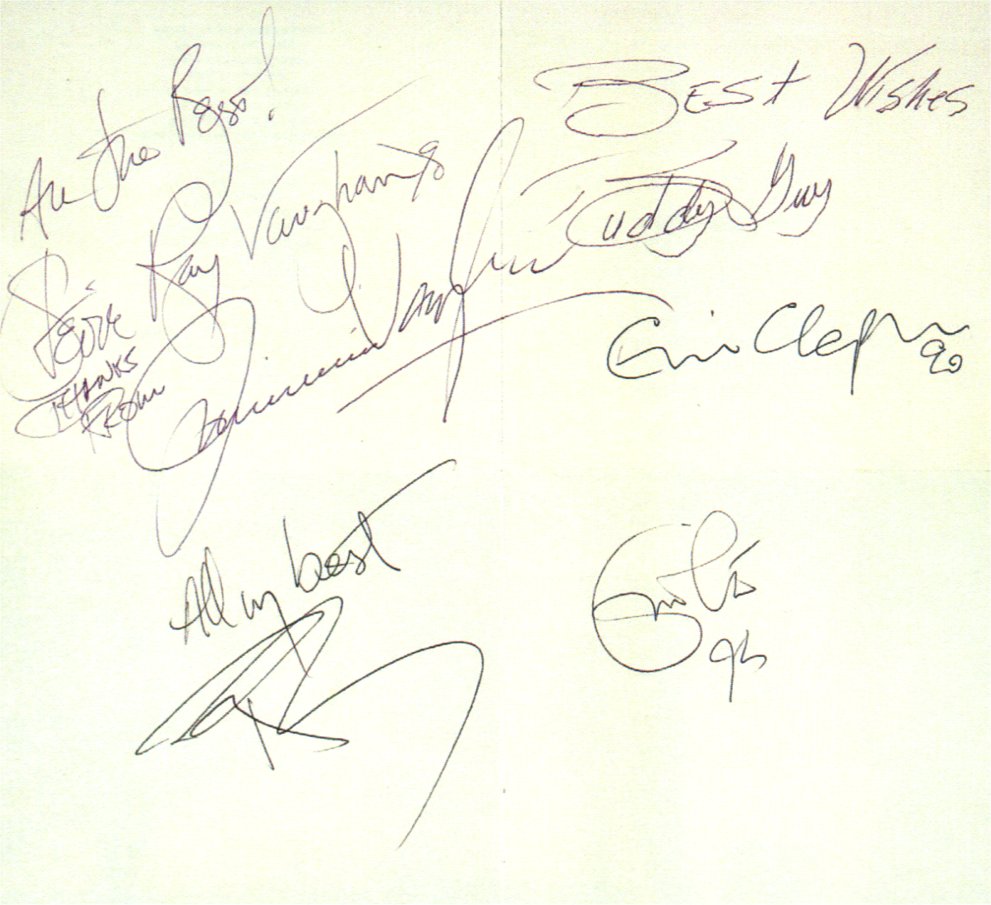 All the Best!
Stevie Ray Vaughan
THANKS
FROM
Jimmie Vaughan
BEST WISHES
Buddy Guy
Eric Clapton
90
All my best